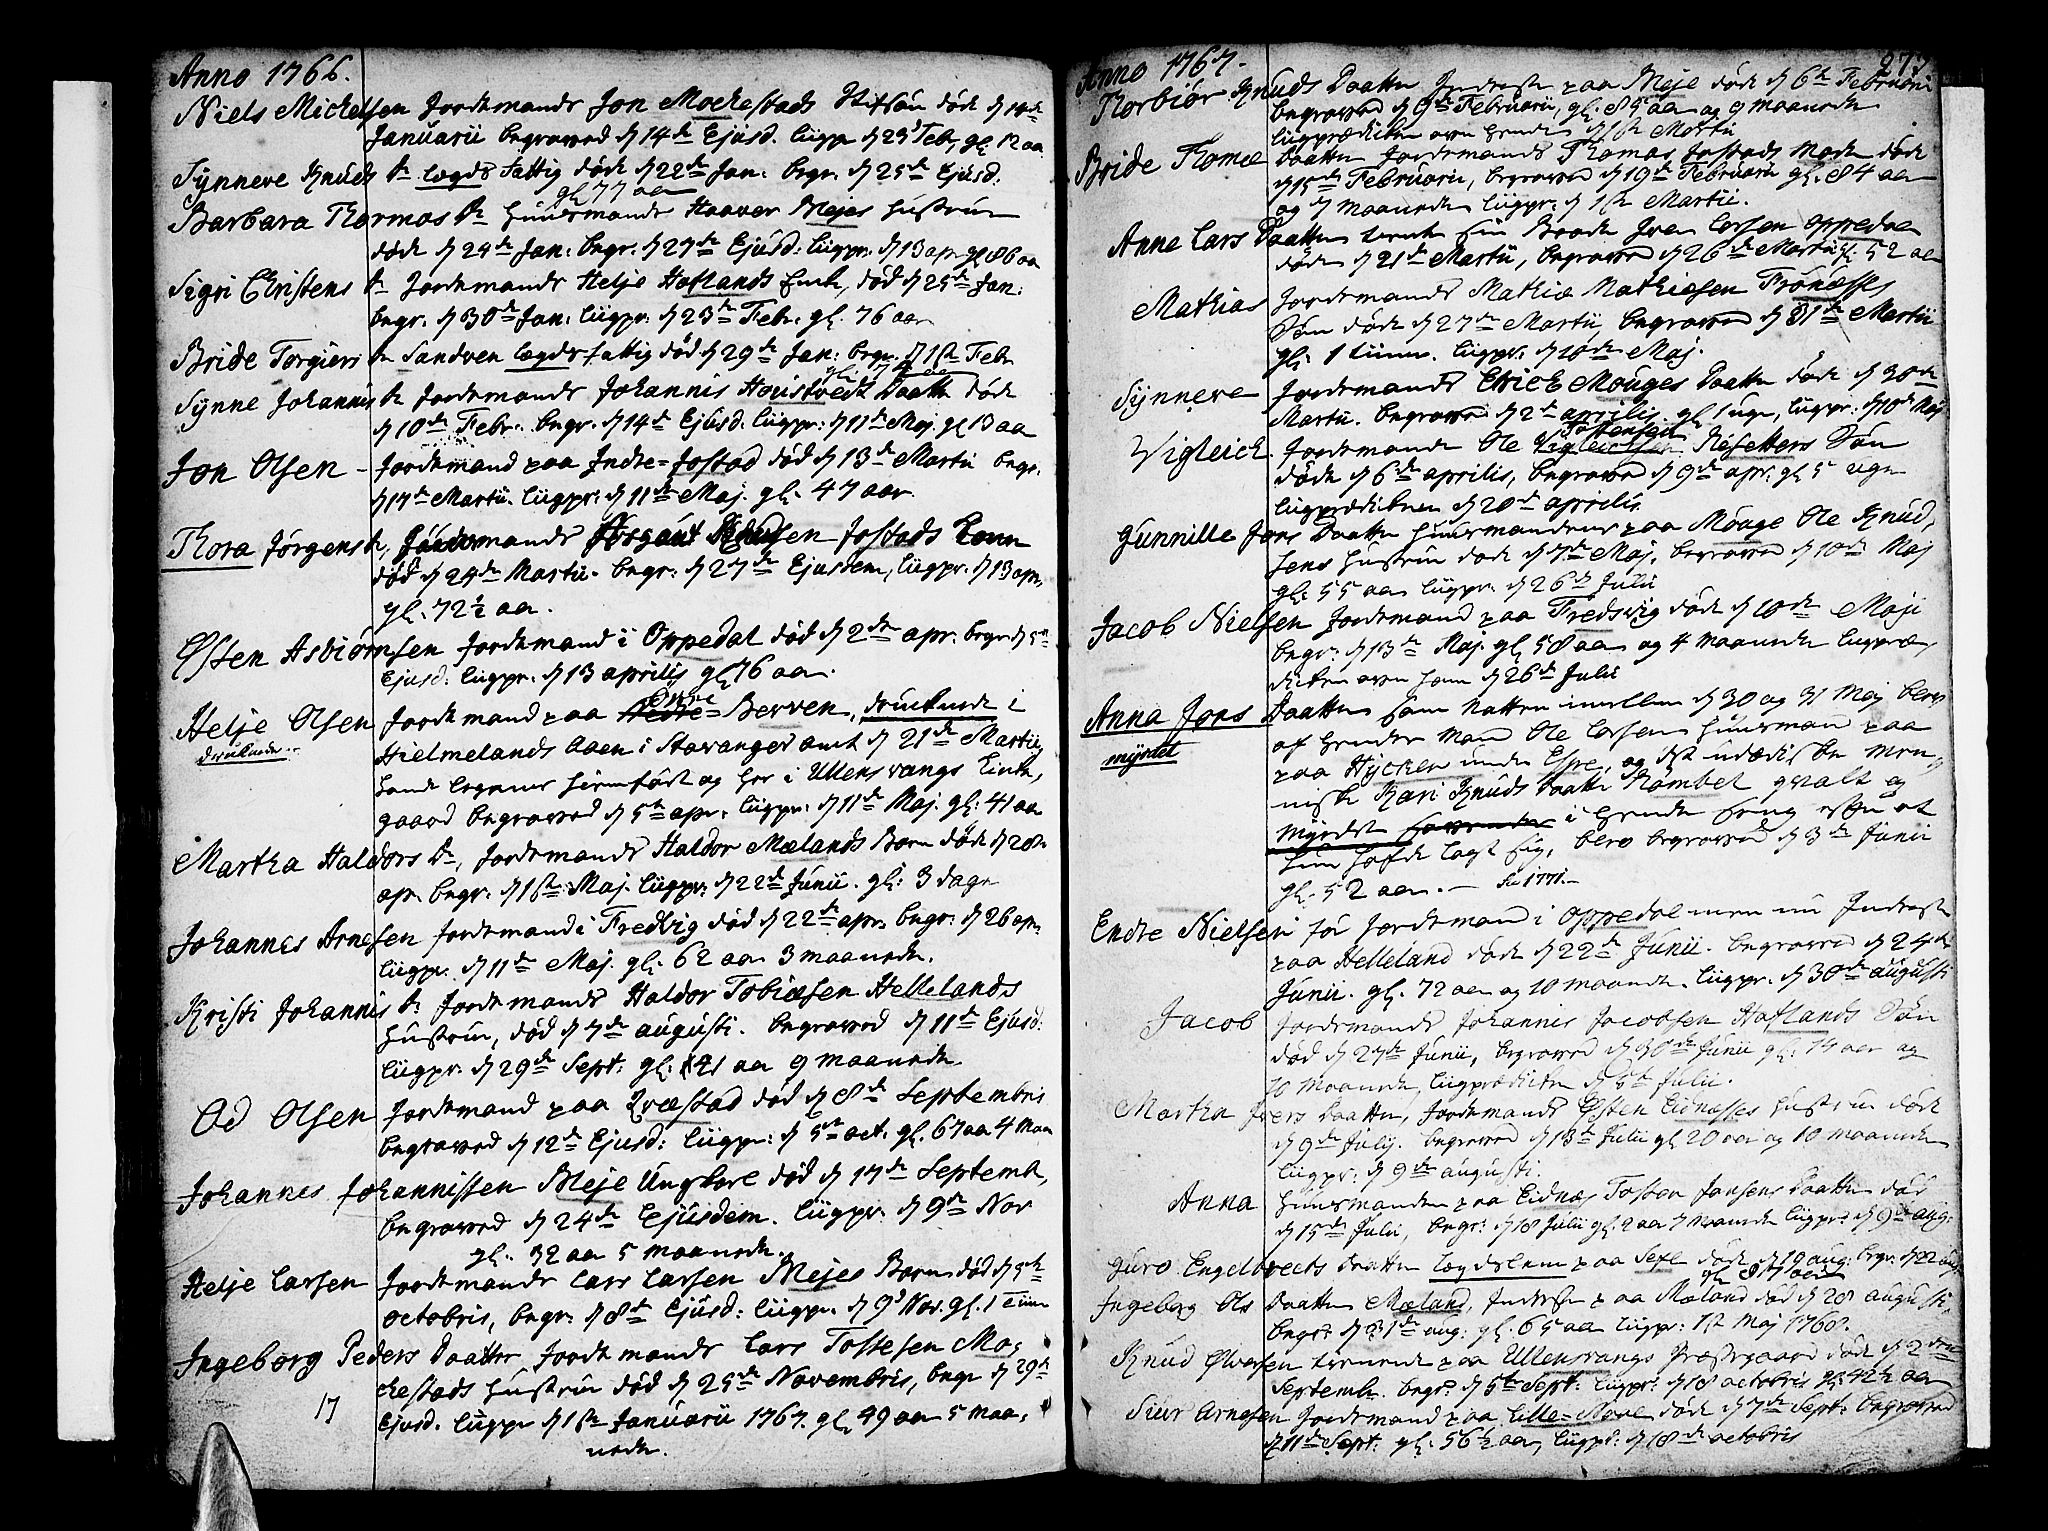 Anno 1766.
Niels Michelsen Jordtmands Jon Mockestads Stifsøn døde d 10de
Januarii begraved d 14de Ejusd. liigpr d 23 Feb, gl. 12 aar
Synneve Knuds dr lægds fattig døde d 22de Jan: begr. d 25de Ejusd:
gl 77 aar
Barbara Thormos dr huusmands Haaver Mejes hustrue
døde d 24de Jan: begr. d 27de Ejusd: liigpr: d 13 apr gl 86 aar
Sigri Christens dr Jordtmands Helje Hoflands Enke, død d 25de Jan:
begr. d 30de Jan: liigpr: d 23de Febr. gl. 76 aar
Bride Torgiers dr Sandven lægds-fattig død d 29de Jan: begr. d 1ste Febr
gl: 74 aar
Synne Johannis dr Jordtmands Johannis Houstvedt Daatter døde
d 10de Febr. begr. d 14de Ejusd: liigpr: d 11te Maj. gl 13 aar
Jon Olsen - Jordtmand paa Indre=Jostad død d 13de Martii begr.
d 17de Martii. liigpr: d 11te Maj. gl. 47 aar.
Thora Jørgens dr, Jordtmands Asgaut Jostads kone
død d 24de Martii. begr: d 27de Ejusdem, liigpr. d 13 apr,
gl. 72½ aar.
Østen Asbiørnsen Jordtmand i Oppedal død d 2den apr. begr d 5te
Ejusd: liigpr. d 13 aprilis gl 76 aar.
Helje Olsen Jordtmand paa Nedre Øvre=Berven, druknede i
druknede.
Hielmelands Aaen i Stavanger amt d 21de Martii,
hands legeme hiemført og her i Ullensvangs kirke,
gaard begraved d 5te apr. liigpr: d 11te Maj. gl: 41 aar
Martha Haldors dr, Jordtmands Haldor Mælands Barn døde d 28
apr. begr: d 1ste Maj. liigpr: d 22de Junii. gl: 3 dage
Johannes Arnesen Jordtmand i Tredvig død d 22de apr: begr: d 26 apr.
liigpr. d 11te Maj. gl: 62 aar 3 maaneder.
Kristi Johannis dr Jordtmands Haldor Tobiæsen Hellelands
hustrue, død d 7de augusti. begraved d 11te Ejusd:
liigpr. d 29de Sept: gl: 41 aar 9 maaneder
Od Olsen Jordtmand paa Qvæstad død d 8de Septembris
begraved d 12te Ejusd: liigpr: d 5te oct. gl. 67 aar 4 maan
Johannes Johannissen Meje Ungkarl død d 17de Septemb,
begraved d 24de Ejusdem. liigpr. d 9de Nov
gl. 32 aar 5 maaneder.
Helje Larsen Jordtmands Lars Larsen Mejes Barn død d 5te
octobris, begr: d 8de Ejusd: liigpr. d 9 Nov. gl. 1 Time
Ingeborg Peders Daatter Jordtmands Lars Tostesen Mo,
ckestads hustrue død d 25de Novembris, begr d 29de
17
Ejusd. liigpr d 1ste Januarii 1767. gl 49 aar 5 maa,
neder.
Anno 1767.
277
Thorbiør Knuds Daatter Inderste paa Meje døde d 6te Februarii
begraved d 9de Februarii, gl. 85 aar og 9 maaneder
liigprædiken over hende d 1ste Martii
Bride Thomæ Daatter Jordtmands Thomas Jostads Moder døde
d 15de Februarii, begraved d 19de Februarii gl. 84 aar
og 7 maaneder liigpr: d 1ste Martii.
Anne Lars Daatter tiente sin Broder Iver Larsen Oppedal
døde d 21de Martii, begraved d 26de Martii gl: 52 aar
Mathias Jordtmands Mathiæ Mathiesen Trønæsses
Søn døde d 27de Martii, begraved d 31te Martii
gl: 1 time. liigpr: d 10de Maj.
Synneve Jordtmands Erich Mouges Daatter døde d 30de
Martii. begraved d 2den aprilis. gl 1 uge, liigpr: d 10de Maj
Vigleich Jordtmands Ole Vigleichsen Tostensen Røsetters Søn
døde d 6te aprilis, begraved d 9de apr: gl 5 uger
liigprædiken d 20de aprilis.
Gunnille Jons Daatter huusmandens paa Mouge Ole Knud,
sens hustrue døde d 7de Maj. begraved d 10de Maj
gl: 55 aar liigpr: d 26de Julii
Jacob Nielsen Jordtmand paa Tredevig døde d 10de Maji
begr: d 13de Maj. gl 58 aar og 4 maaneder liigpræ,
diken over ham d 26de Julii
Anna Jons Daatter som natten imellem d 30 og 31 Maj blev
myrdet
af hendes Mand Ole Larsen huusmand paa
paa Hycken under Espe, og det udædiske Men,
niske Kari Knuds Daatter Rambel qvalt og
myrdet i hendes seng efter at
hun hafde lagt sig, blev begraved d 3de Junii
gl. 52 aar. — See 1771.—
Endre Nielsen i før Jordtmand i Oppedal men nu Inderste
paa Helleland døde d 22de Junii. begraved d 24de
Junii. gl. 72 aar og 10 maaneder. liigpr. d 30de augusti
Jacob Jordtmands Johannis Jacobsen Hoflands Søn
død d 27de Junii, begraved d 30de Junii gl: 14 aar og
10 maaneder, liigprædiken d 5te Julii.
Martha Ivers Daatter, Jordtmands Østen Eidnæsses hustrue døde
d 9de Julij. begraved d 13de Julii gl 20 aar og 10 maaneder
liigpr: d 9de augusti.
Anna huusmandens paa Eidnæs Tosten Jonsens Daatter død
d 15de Julii, begr: d 18 Julii gl. 2 aar 7 maaneder liigpr: d 9de aug:
Guro Engelbrects Daatter lægdslem paa Sexe døde d 19 aug: begr: d 22 aug
gl 87 aar
Ingeborg Ols Daatter Mæland, Inderste paa Mæland død d 28 augusti,
begr: d 31te aug: gl. 65 aar liigpr: 1ste Maj 1768.
Knud Olversen tienende paa Ullensvangs Præstegaard døde d 2den
Septemb. begr: d 5te Sept: liigpr: d 18 octobris gl: 42½ aar
Siur Arnesen Jordtmand paa Lille=Naae døde d 7de Sept: begraved
d 11te Sept: gl: 56½ aar, liigpr: d 18de octobris